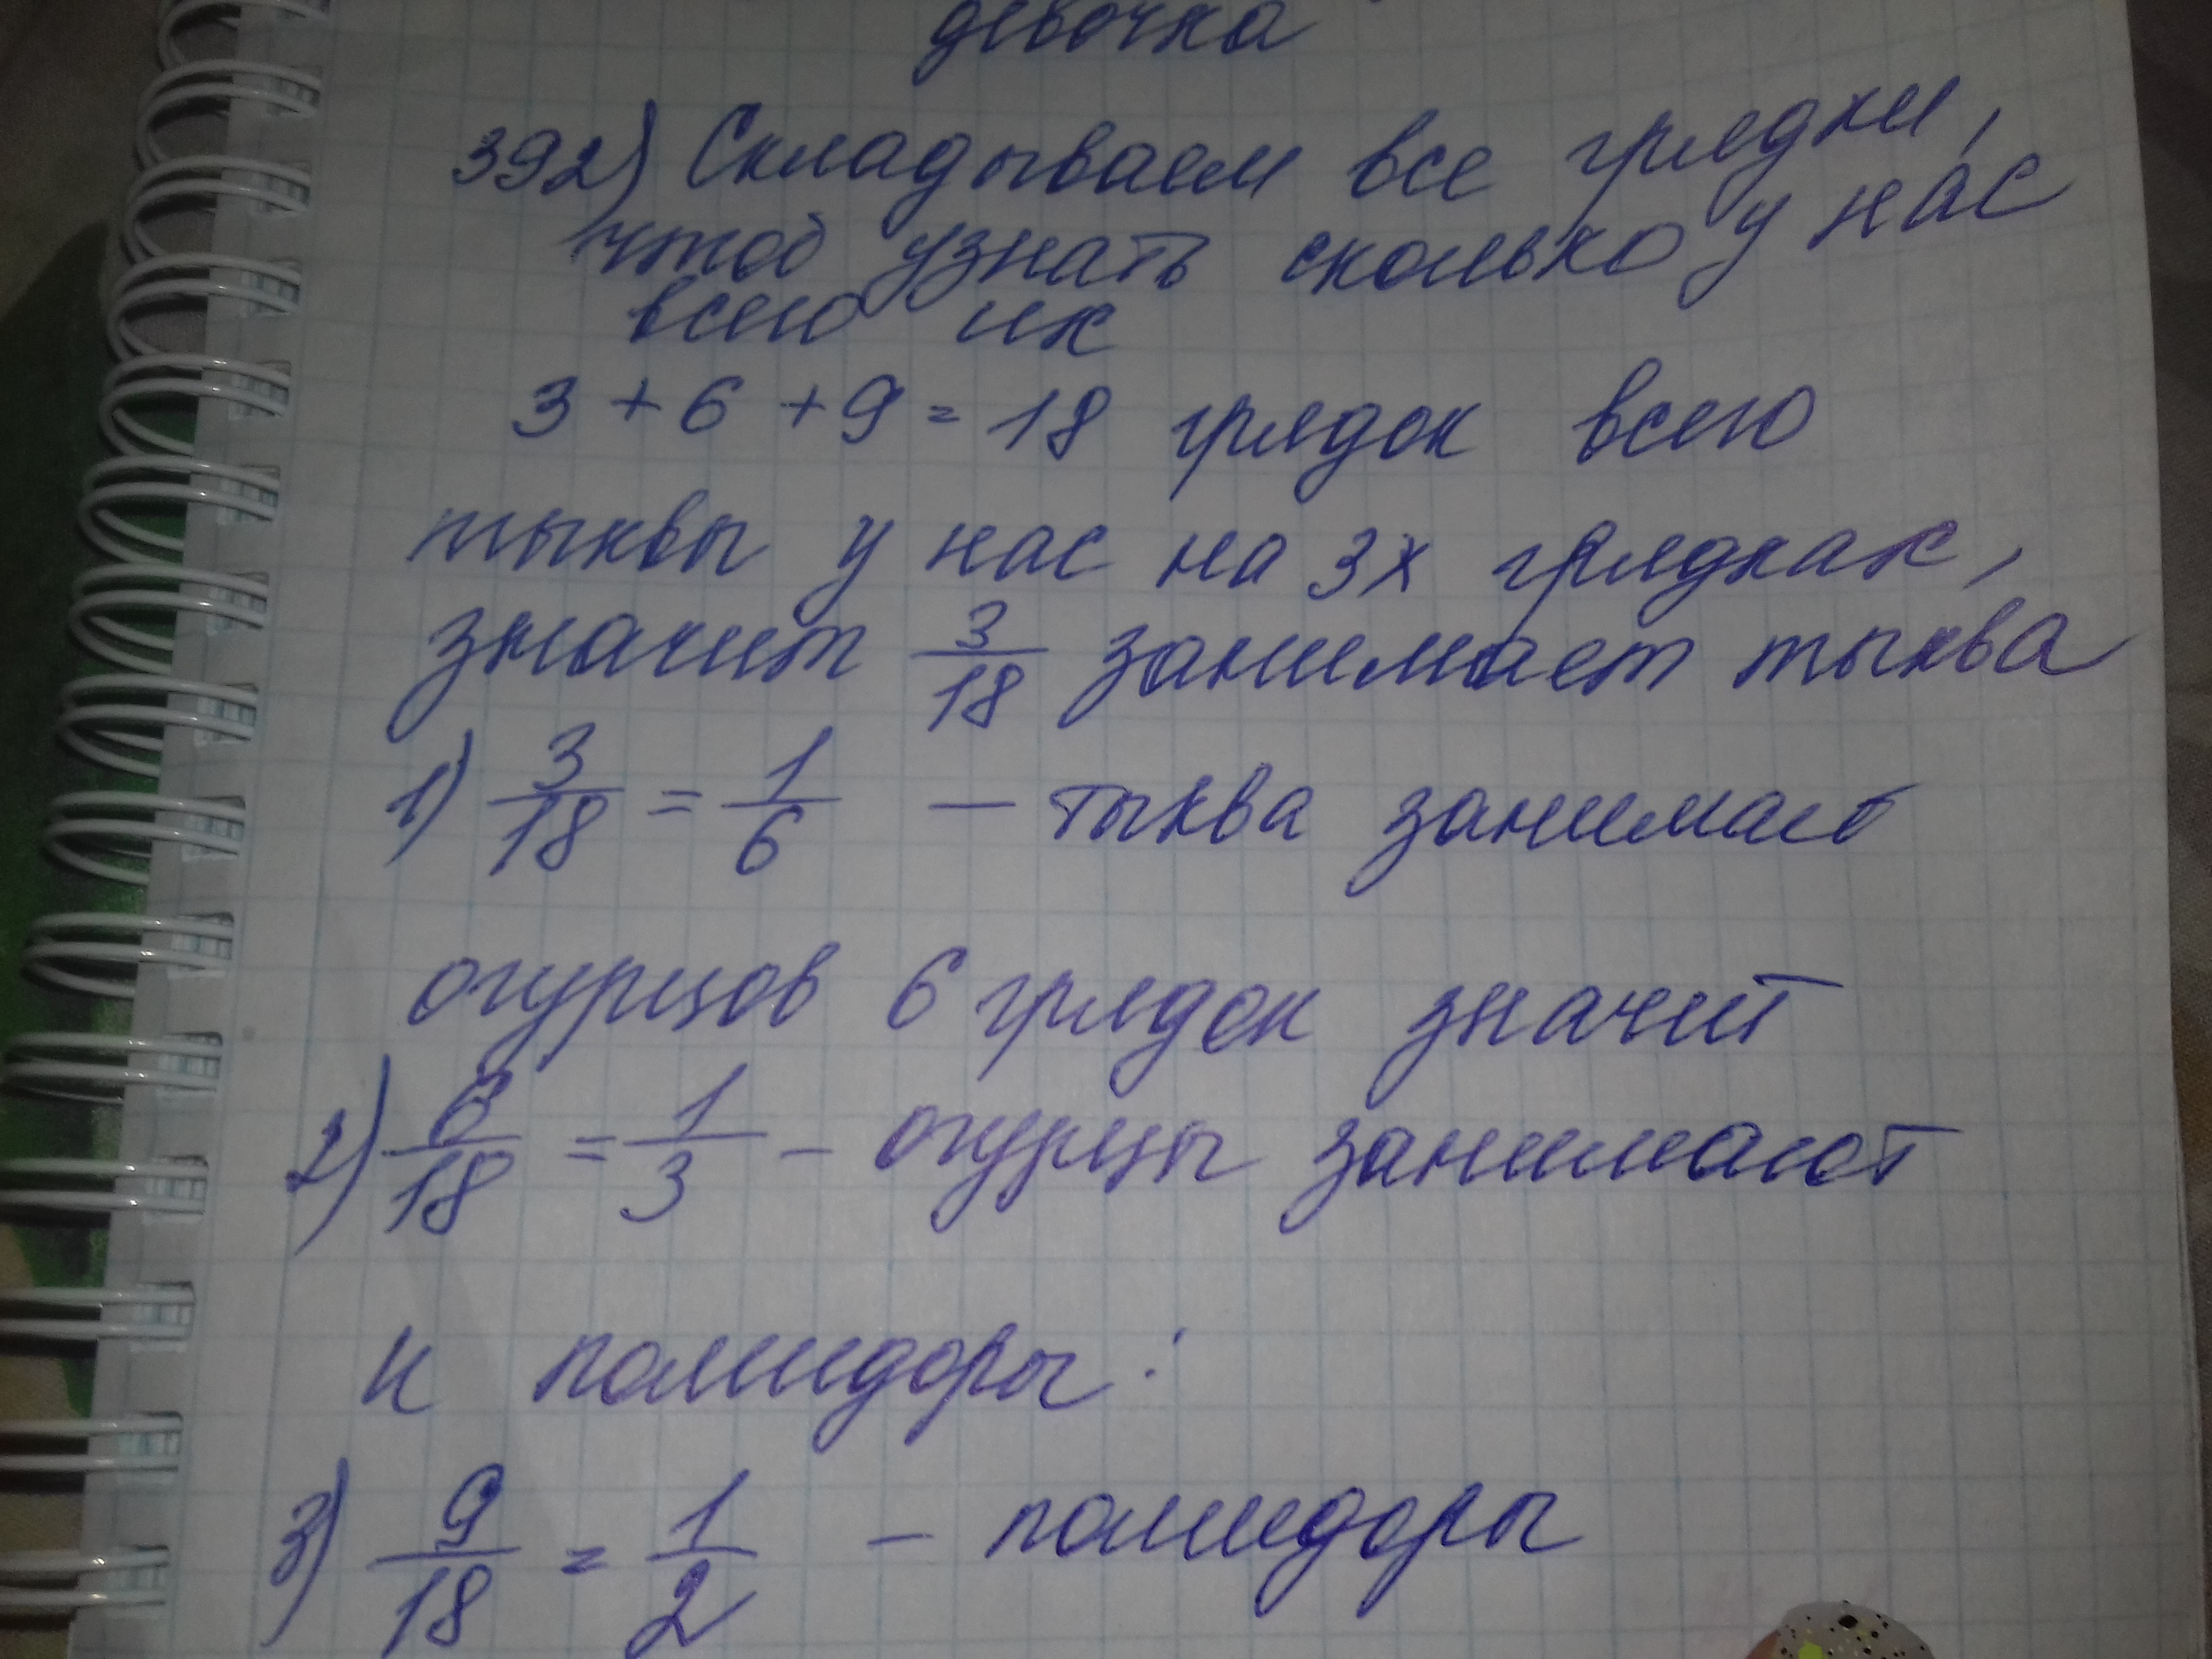 девочка
392) Складываем все грядки,
чтоб узнать сколько у нас
всего их
3 + 6 + 9 = 18 грядок всего
тыквы у нас на 3х грядках,
значит 3/18 занимает тыква
1) 3/18 = 1/6 — тыква занимает
огурцов 6 грядок значит
2) 6/18 = 1/3 – огурцы занимают
и помидоры:
3) 9/18 = 1/2 – помидоры